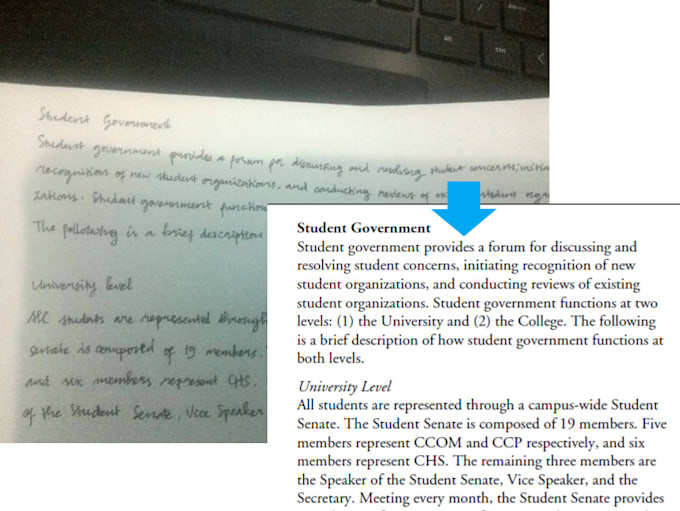 Student Government
Student government provides a forum for discussing and resolving student concerns, initia
recognition of new student organizations, and conducting reviews of student orga
zations. Student government function
The following is a brief description
University level
All students are represented through
senate is composed of 19 members.
and six members represent CHS.
of the Student Senate, Vice Speaker
Student Government
Student government provides a forum for discussing and
resolving student concerns, initiating recognition of new
student organizations, and conducting reviews of existing
student organizations. Student government functions at two
levels: (1) the University and (2) the College. The following
is a brief description of how student government functions at
both levels.
University Level
All students are represented through a campus-wide Student
Senate. The Student Senate is composed of 19 members. Five
members represent CCOM and CCP respectively, and six
members represent CHS. The remaining three members are
the Speaker of the Student Senate, Vice Speaker, and the
Secretary. Meeting every month, the Student Senate provides